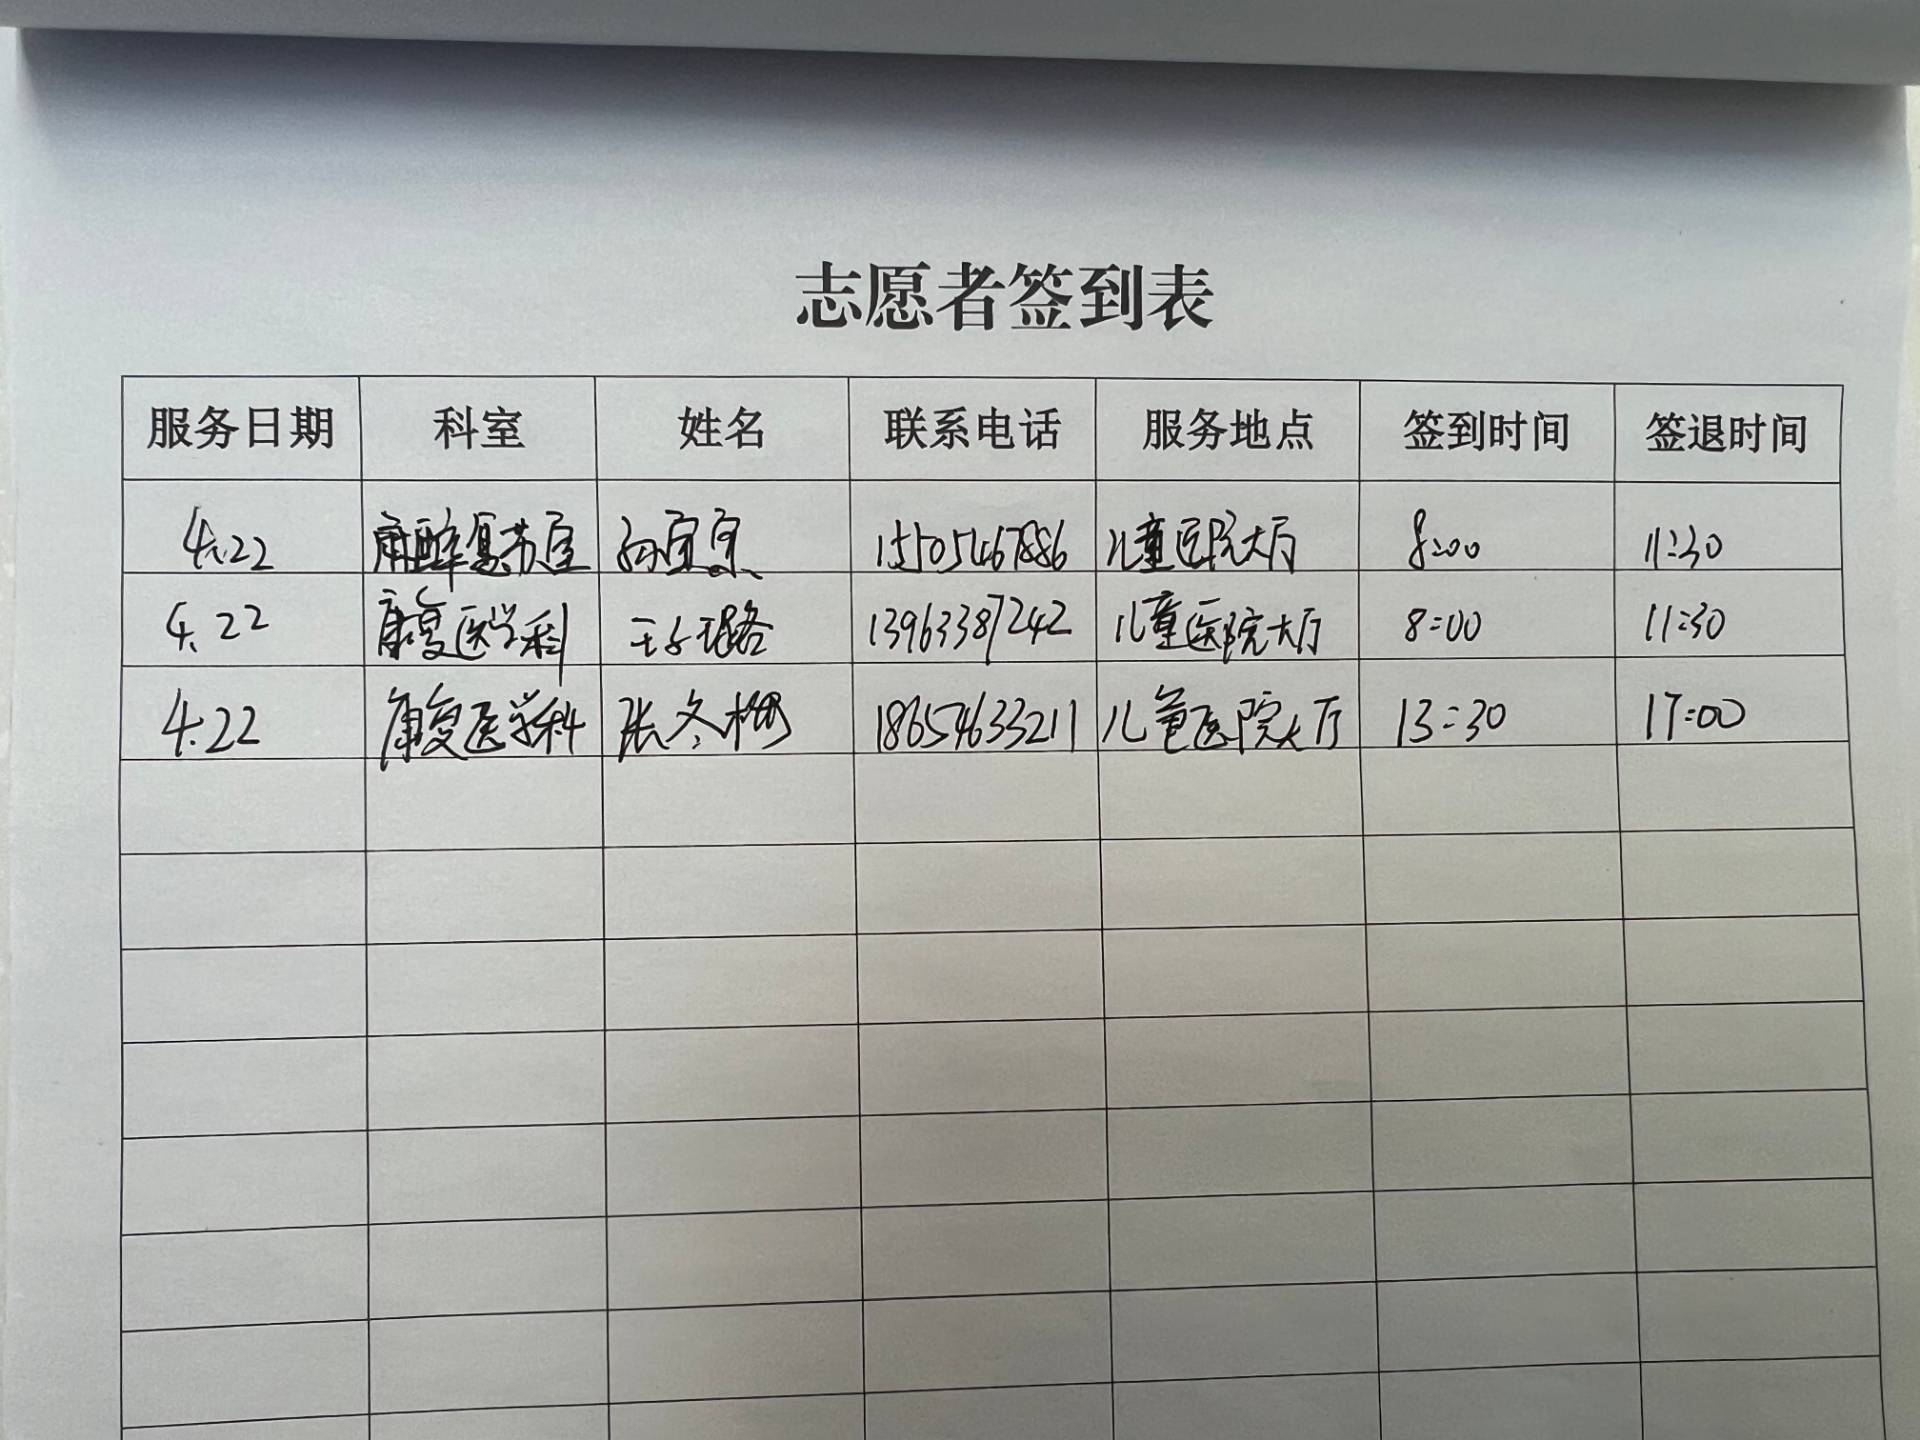 志愿者签到表
服务日期 科室 姓名 联系电话 服务地点 签到时间 签退时间
4.22 麻醉复苏室 孙宜 15105467886 儿童医院大厅 8:00 11:30
4.22 康复医学科 王子璐 13963387242 儿童医院大厅 8:00 11:30
4.22 康复医学科 张冬梅 18654633211 儿童医院大厅 13:30 17:00